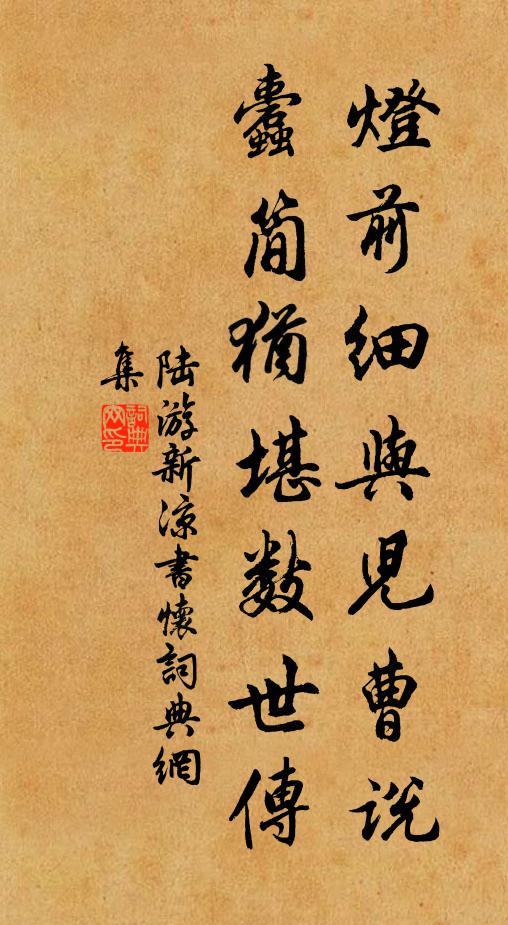 燈前細與兒曹說
蠹簡猶堪數世傳
陆游新涼書懷詞典網
集
詞典